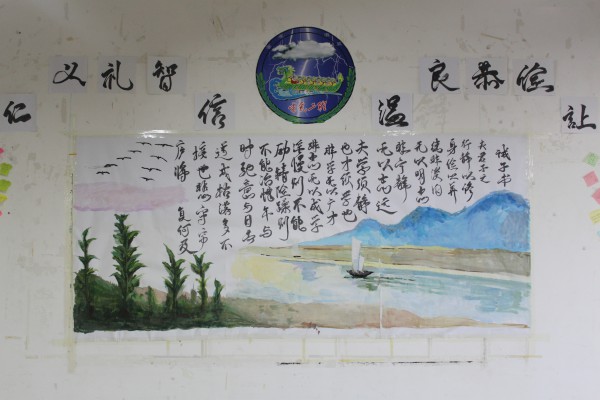 仁义礼智信温良恭俭让
诫子书
夫君子之
行静以修
身俭以养
德非澹泊
无以明志
非宁静
无以致远
夫学须静
也才须学也
非学无以广才
非志无以成学
淫慢则不能
励精险躁则
不能治性年与
时驰意与日去
遂成枯落多不
接世悲守穷
庐将复何及